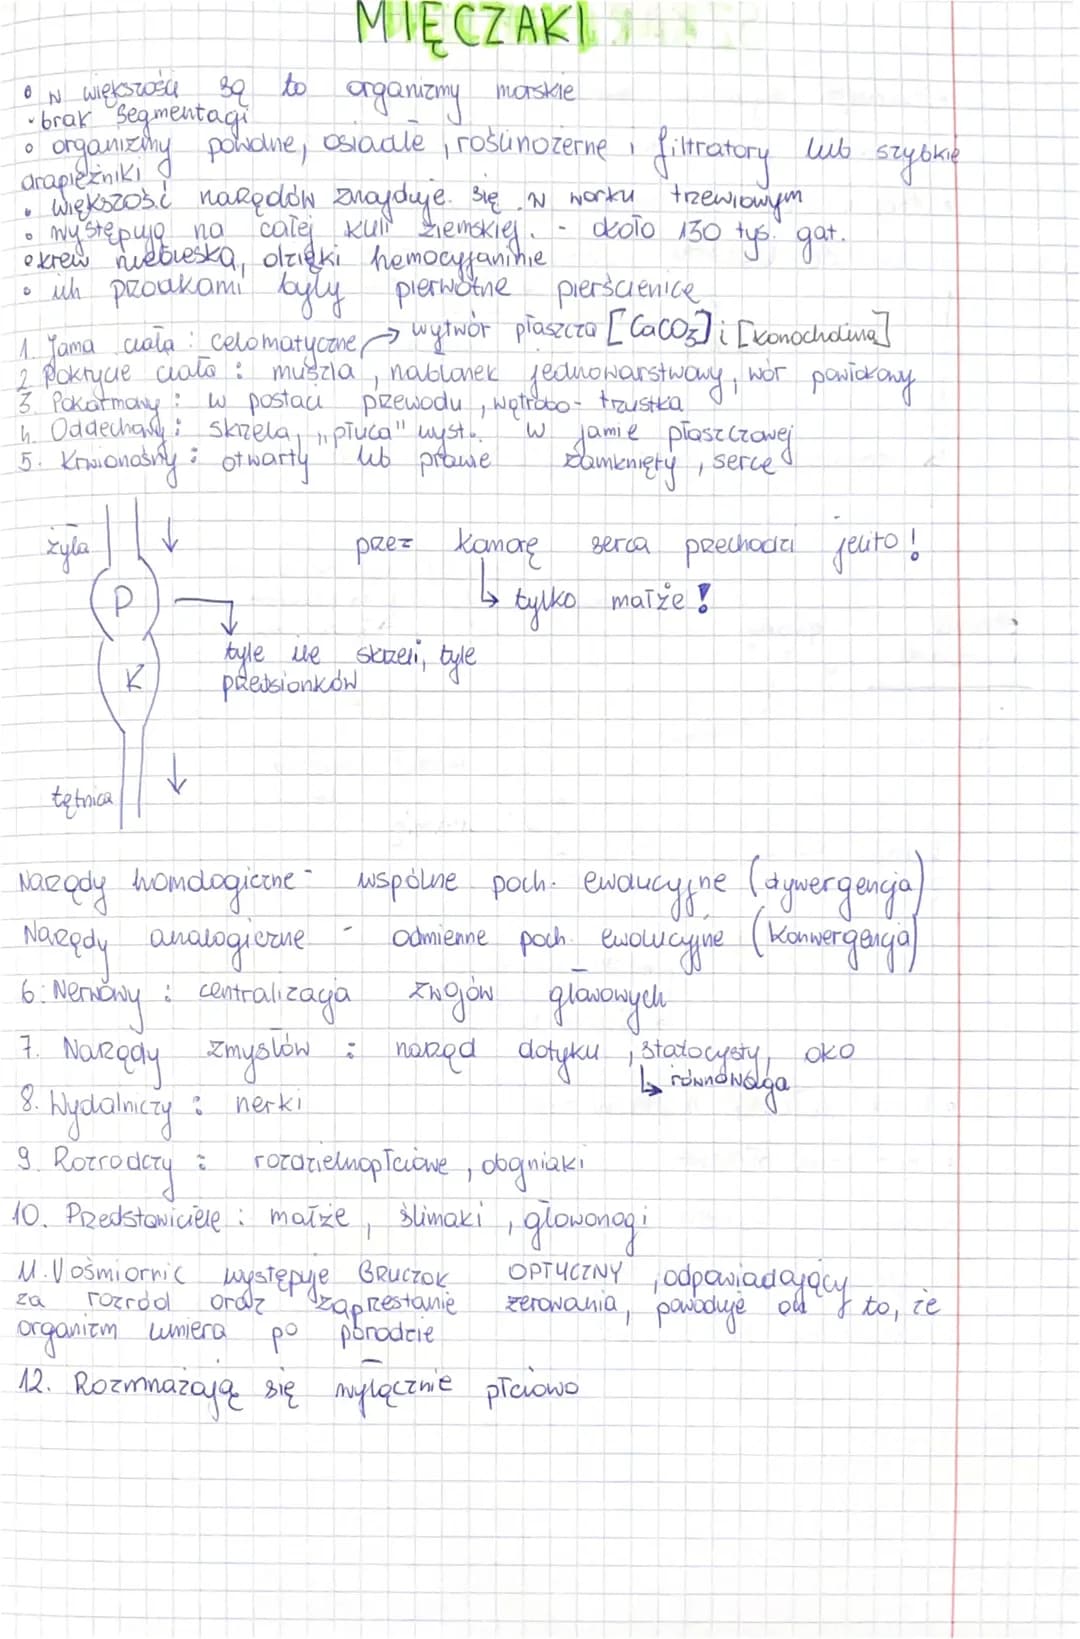 MIĘCZAKI
• w większości są to organizmy morskie
• brak segmentacji
• organizmy powolne, osiadłe, roślinożerne, filtratory lub szybkie
drapieżniki
• większość narządów znajduje się w worku trzewiowym
• występują na całej kuli ziemskiej - około 130 tys. gat.
• krew niebieska, dzięki hemocyjaninie
• ich przodkami były pierwotne pierścienice
1. Jama ciała : celomatyczne → wytwór płaszcza [CaCO3] i [konocholina]
2. Pokrycie ciała : muszla, nabłonek jednowarstwowy, wór powłokowy
3. Pokarmowy : w postaci przewodu, wątrobo-trzustka
4. Oddechowy : skrzela, "płuca" wyst. w jamie płaszczowej
5. Krwionośny : otwarty lub prawie zamknięty, serce
żyła ↓
przez komorę serca przechodzi jelito !
↳ tylko małże !
P
tyle ile skrzeli, tyle
przedsionków
K
tętnica ↓
Narządy homologiczne - wspólne poch. ewolucyjne (dywergencja)
Narządy analogiczne - odmienne poch. ewolucyjne (konwergencja)
6. Nerwowy : centralizacja zwojów głowowych
7. Narządy zmysłów : narząd dotyku, statocysty, oko
↳ równowaga
8. Wydalniczy : nerki
9. Rozrodczy : rozdzielnopłciowe, obojniaki
10. Przedstawiciele : małże, ślimaki, głowonogi
11. U ośmiornic występuje GRUCZOŁ OPTYCZNY, odpowiadający
za rozród oraz zaprzestanie żerowania, powoduje on to, że
organizm umiera po porodzie
12. Rozmnażają się wyłącznie płciowo